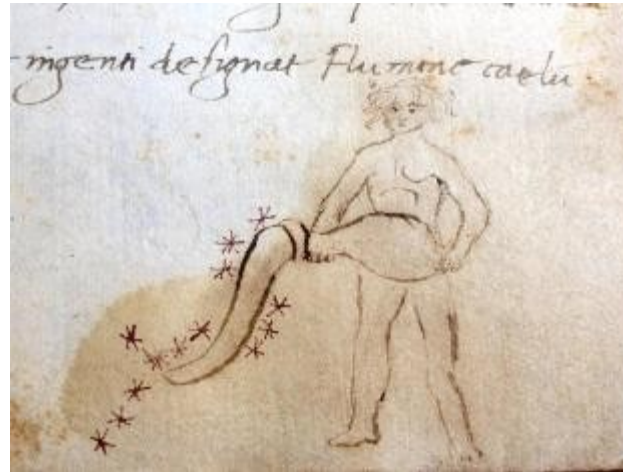 ingenti designat Flumine caelu